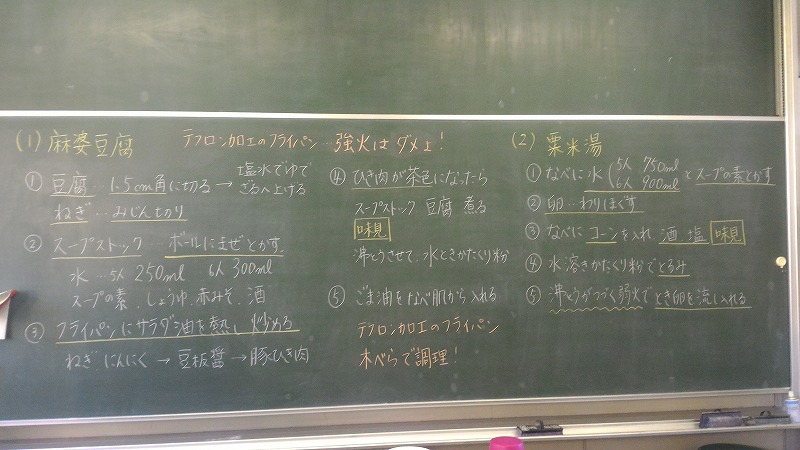 (1) 麻婆豆腐
テフロン加工のフライパン…強火はダメよ!
① 豆腐…1.5cm角に切る→塩水でゆで
ざるへ上げる
ねぎ…みじん切り
② スープストック…ボールにまぜとかす
水…5人 250ml 6人 300ml
スープの素、しょうゆ、赤みそ、酒
③ フライパンにサラダ油を熱し炒める
ねぎ、にんにく→豆板醤→豚ひき肉
④ ひき肉が茶色になったら
スープストック 豆腐 煮る
味見
沸とうさせて、水ときかたくり粉
⑤ ごま油をなべ肌から入れる
テフロン加工のフライパン
木べらで調理!
(2) 粟米湯
① なべに水(5人 750ml
6人 900ml とスープの素とかす
② 卵…わりほぐす
③ なべにコーンを入れ、酒、塩 味見
④ 水溶きかたくり粉でとろみ
⑤ 沸とうがつづく弱火でとき卵を流し入れる